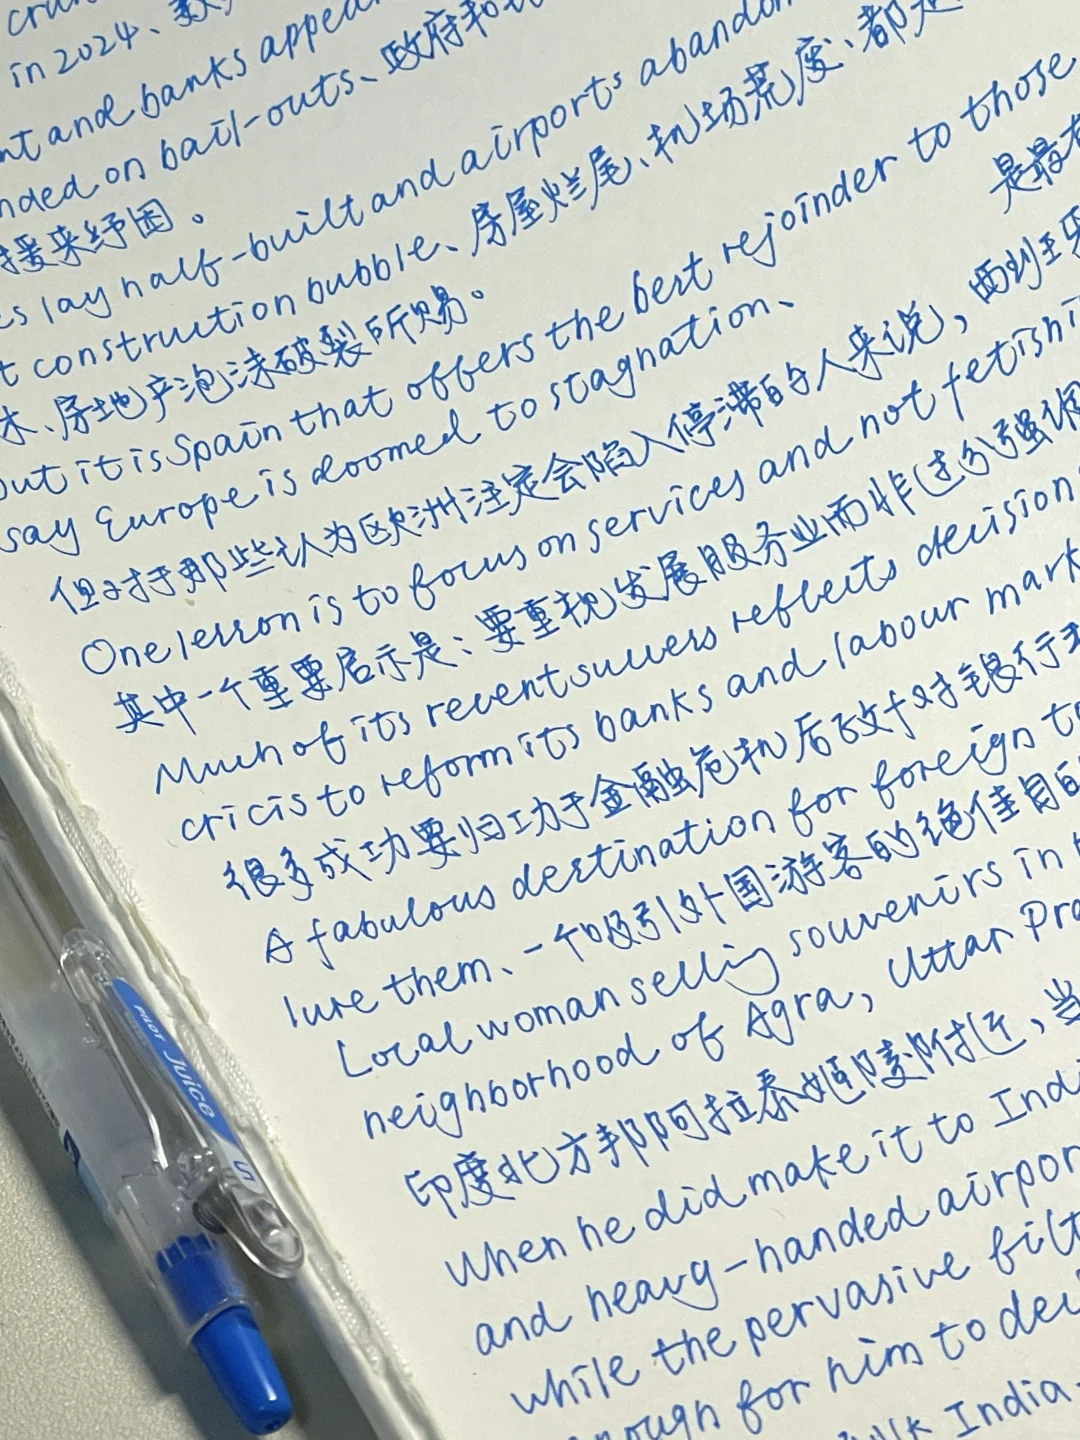 in 2024、
and banks appea
on bail-outs、政府和
援来纾困。
lay half-built and airports abandon
construction bubble、房屋烂尾、机场荒废、都是
房地产泡沫破裂所赐。
but it is Spain that offers the best rejoinder to those
say Europe is doomed to stagnation、 是最
但对于那些认为欧洲注定会陷入停滞的人来说，西班牙
One lesson is to focus on services and not fetishi
其中一个重要启示是：要重视发展服务业而非过分强调
Much of its recent success reflects decision
cricis to reform its banks and labour mark
很多成功要归功于金融危机后政府对银行
A fabulous destination for foreign t
lure them、一个吸引外国游客的绝佳目的
Local woman selling souvenirs in
neighborhood of Agra, Uttar Pra
印度北方邦阿拉泰姬陵附近，当
When he did make it to Indi
and heavy-handed airpor
while the pervasive filt
enough for him to deci
India
PILOT Juice
5